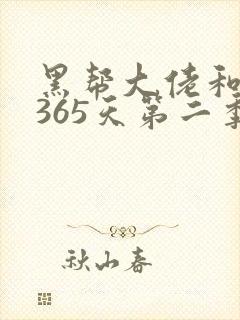 黑帮大佬和
365天第二季
秋山春